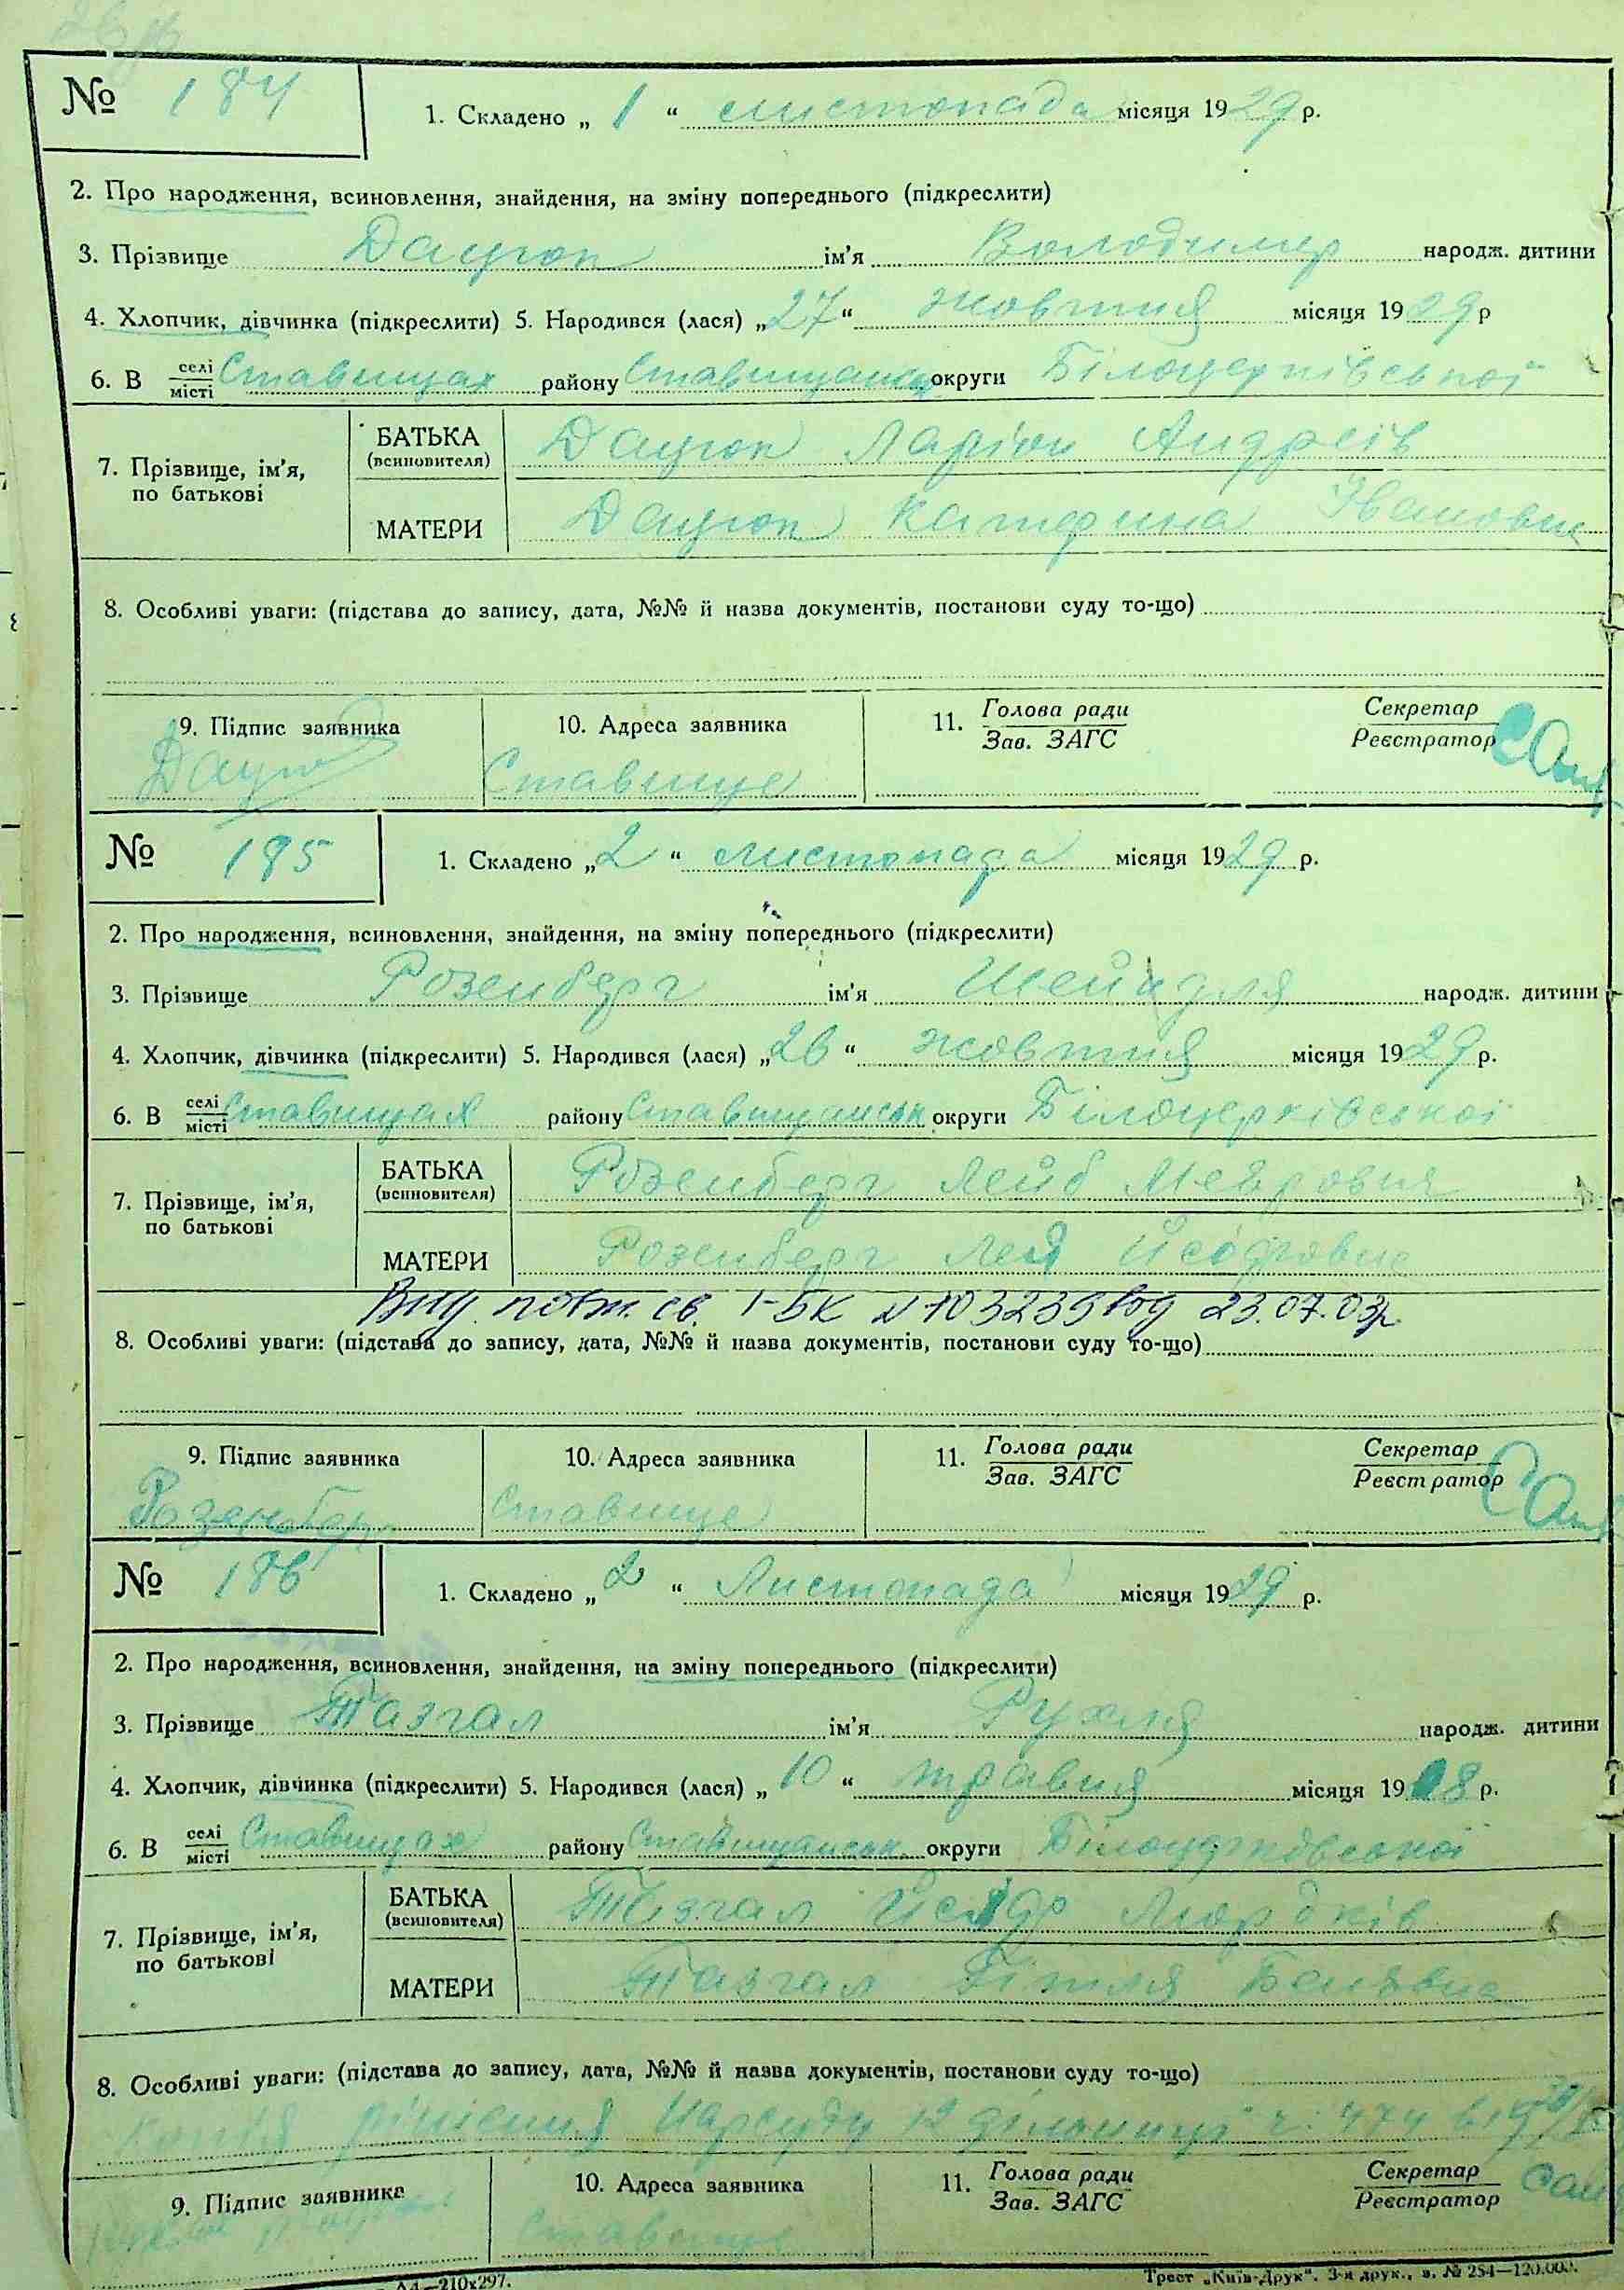 № 184
1. Складено „ 1 “ листопада місяця 1929 р.
2. Про народження, всиновлення, знайдення, на зміну попереднього (підкреслити)
3. Прізвище Дацюк ім’я Володимир народж. дитини
4. Хлопчик, дівчинка (підкреслити) 5. Народився (лася) „27“ жовтня місяця 1929 р
6. В селі місті Ставищах району округи Білоцерківської
7. Прізвище, ім’я, по батькові
БАТЬКА (всиновителя) Дацюк Ларіон Андреїв
МАТЕРИ Дацюк Катерина Івановна
8. Особливі уваги: (підстава до запису, дата, №№ й назва документів, постанови суду то-що)
9. Підпис заявника
10. Адреса заявника
11. Голова ради Зав. ЗАГС
Секретар Реєстратор
Ставище
№ 185
1. Складено „2“ листопада місяця 1929 р.
2. Про народження, всиновлення, знайдення, на зміну попереднього (підкреслити)
3. Прізвище Розенберг ім’я Шейндля народж. дитини
4. Хлопчик, дівчинка (підкреслити) 5. Народився (лася) „26“ жовтня місяця 1929 р.
6. В селі місті Ставищах району Ставищанськ округи Білоцерківської
7. Прізвище, ім’я, по батькові
БАТЬКА (всиновителя) Розенберг Лейб
МАТЕРИ Розенберг Лея
Вид. повт. св. І-БК № 103239 від 23.07.03р.
8. Особливі уваги: (підстава до запису, дата, №№ й назва документів, постанови суду то-що)
9. Підпис заявника
10. Адреса заявника
11. Голова ради Зав. ЗАГС
Секретар Реєстратор
Ставище
№ 186
1. Складено „2“ Листопада місяця 1929 р.
2. Про народження, всиновлення, знайдення, на зміну попереднього (підкреслити)
3. Прізвище Тазгал ім’я Рухля народж. дитини
4. Хлопчик, дівчинка (підкреслити) 5. Народився (лася) „ 10 “ травня місяця 19 8 р.
6. В селі місті Ставищах району Ставищанськ. округи Білоцерківської
7. Прізвище, ім’я, по батькові
БАТЬКА (всиновителя) Тазгал Мордків
МАТЕРИ Тазгал
8. Особливі уваги: (підстава до запису, дата, №№ й назва документів, постанови суду то-що)
Копія рішення Нарсуду 12 дільниці ч. 474
9. Підпис заявника
10. Адреса заявника
11. Голова ради Зав. ЗАГС
Секретар Реєстратор
Ставище
А4—210х297.
Трест „Київ-Друк“. 3-я друк., з. № 254—120.000.